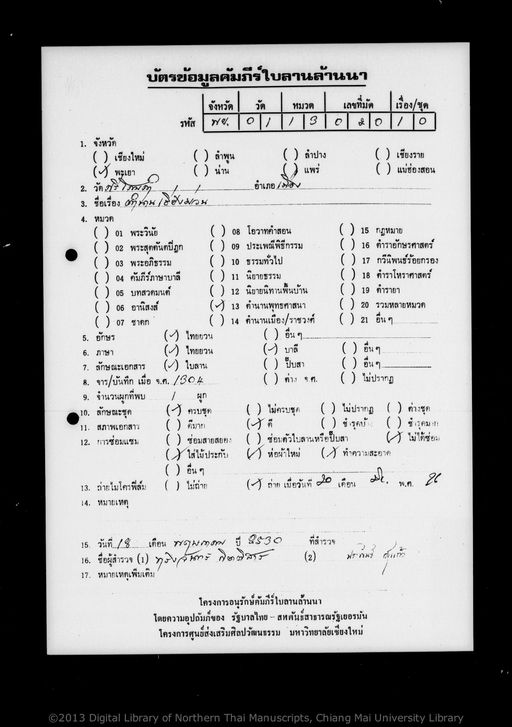 บัตรข้อมูลคัมภีร์ใบลานล้านนา
จังหวัด วัด หมวด เลขที่มัด เรื่อง/ชุด
รหัส พย. 0 1 1 3 0 2 0 1 0
1. จังหวัด
( ) เชียงใหม่ ( ) ลำพูน ( ) ลำปาง ( ) เชียงราย
(✓) พะเยา ( ) น่าน ( ) แพร่ ( ) แม่ฮ่องสอน
2. วัด ศรีโคมคำ อำเภอ เมือง
3. ชื่อเรื่อง ตำนาน
4. หมวด
( ) 01 พระวินัย ( ) 08 โอวาทคำสอน ( ) 15 กฎหมาย
( ) 02 พระสุตตันตปิฎก ( ) 09 ประเพณีพิธีกรรม ( ) 16 ตำรายักษรศาสตร์
( ) 03 พระอภิธรรม ( ) 10 ธรรมทั่วไป ( ) 17 กวีนิพนธ์ร้อยกรอง
( ) 04 คัมภีร์ภาษาบาลี ( ) 11 นิยายธรรม ( ) 18 ตำราโหราศาสตร์
( ) 05 บทสวดมนต์ ( ) 12 นิยายนิทานพื้นบ้าน ( ) 19 ตำรายา
( ) 06 อานิสงส์ (✓) 13 ตำนานพุทธศาสนา ( ) 20 รวมหลายหมวด
( ) 07 ชาดก ( ) 14 ตำนานเมือง/ราชวงศ์ ( ) 21 อื่น ๆ
5. อักษร (✓) ไทยยวน ( ) อื่น ๆ
6. ภาษา (✓) ไทยยวน (✓) บาลี ( ) อื่น ๆ
7. ลักษณะเอกสาร (✓) ใบลาน ( ) ปั๊บสา ( ) อื่น ๆ
8. จาร/บันทึก เมื่อ จ.ศ. 1304 ( ) ต่าง จ.ศ. ( ) ไม่ปรากฏ
9. จำนวนผูกที่พบ 1 ผูก
10. ลักษณะชุด (✓) ครบชุด ( ) ไม่ครบชุด ( ) ไม่ปรากฏ ( ) ต่างชุด
11. สภาพเอกสาร ( ) ดีมาก (✓) ดี ( ) ชำรุด ( ) ชำรุดมาก
12. การซ่อมแซม ( ) ซ่อมสายสยอง ( ) ซ่อมตัวใบลานหรือปั๊บสา (✓) ไม่ได้ซ่อม
(✓) ใส่ไม้ประกับ (✓) ห่อผ้าใหม่ (✓) ทำความสะอาด
( ) อื่น ๆ
13. ถ่ายไมโครฟิล์ม ( ) ไม่ถ่าย (✓) ถ่าย เมื่อวันที่ 20 เดือน พ.ศ.
14. หมายเหตุ
15. วันที่ 18 เดือน พฤษภาคม ปี 2530 ที่สำรวจ
16. ชื่อผู้สำรวจ (1) (2)
17. หมายเหตุเพิ่มเติม
โครงการอนุรักษ์คัมภีร์ใบลานล้านนา
โดยความอุปถัมภ์ของ รัฐบาลไทย - สหพันธ์สาธารณรัฐเยอรมัน
โครงการศูนย์ส่งเสริมศิลปวัฒนธรรม มหาวิทยาลัยเชียงใหม่
©2013 Digital Library of Northern Thai Manuscripts, Chiang Mai University Library